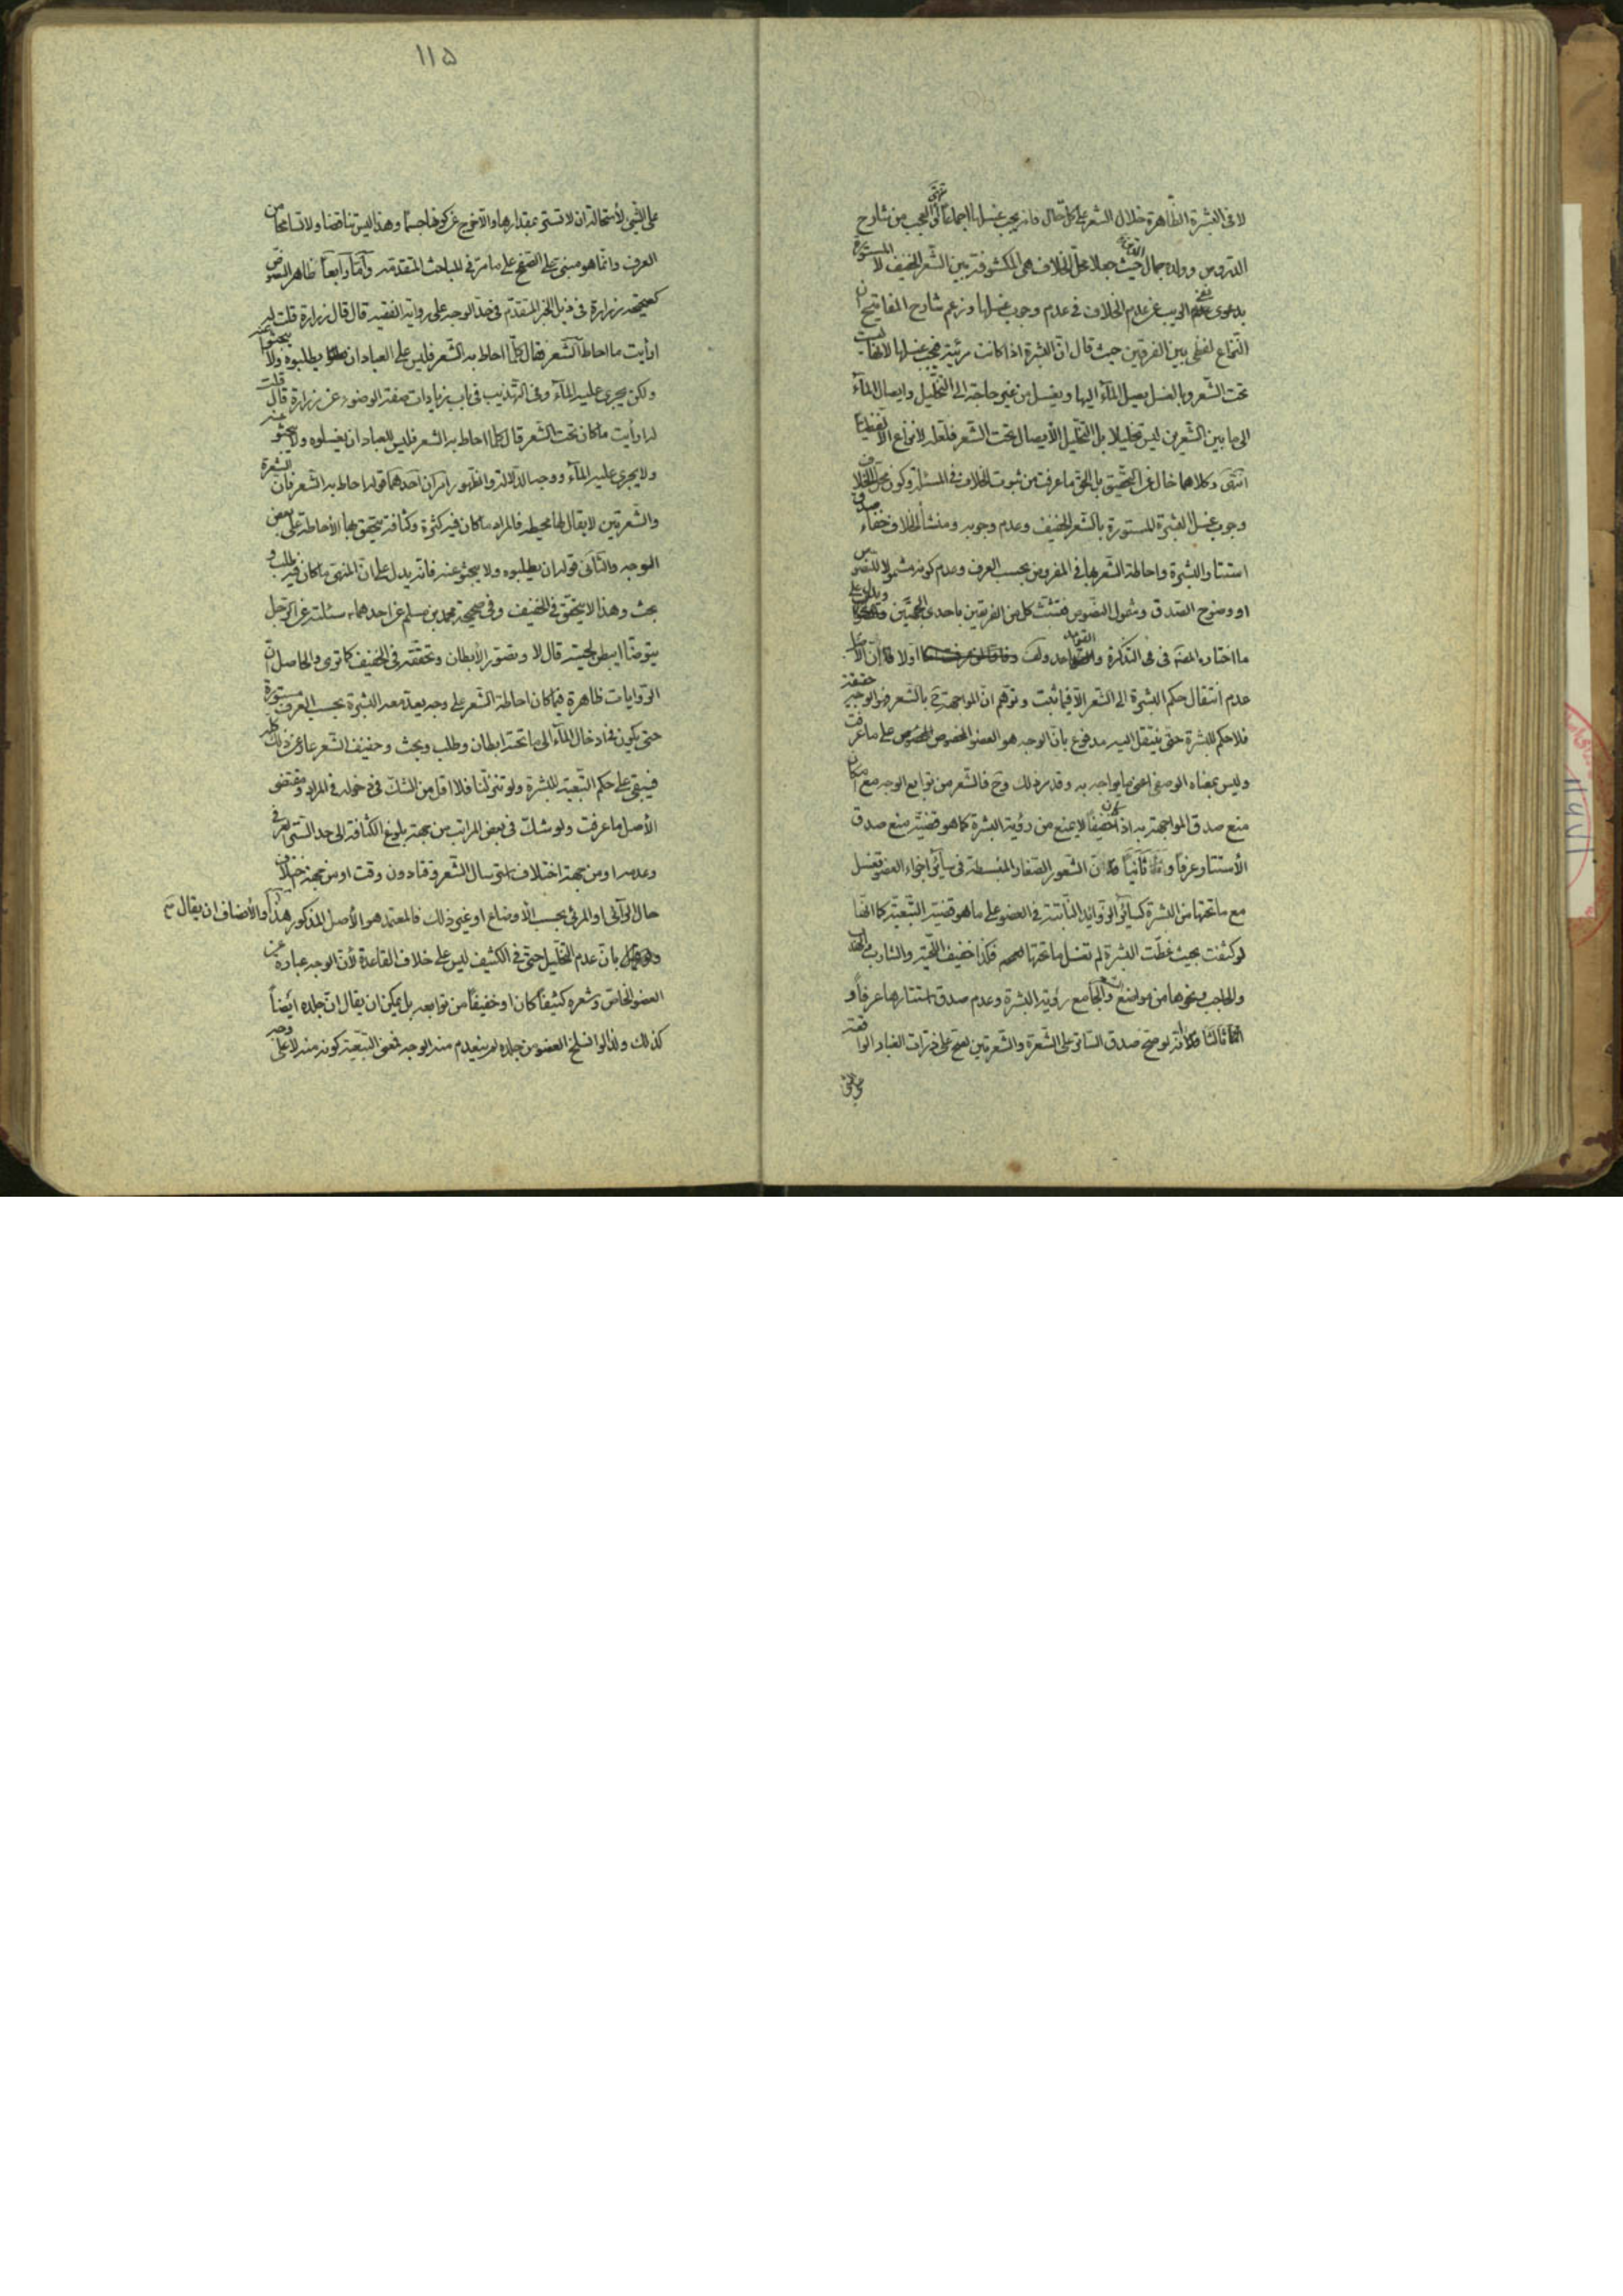 لا في البشرة الظاهرة خلال الشعر على كل حال فانه يجب غسلها اجماعاً انتهى والعجب من شارح
الدروس وولده جمال الدين حيث جعلا محل الخلاف هي المكشوفة بين الشعر الخفيف لا المستورة
بدعوى نفى الريب عن عدم الخلاف في عدم وجوب غسلها وزعم شارح المفاتيح ان
النزاع لفظي بين الفريقين حيث قال ان البشرة اذا كانت مرئية فيجب غسلها لانها ليست
تحت الشعر وبالغسل يصل المآء اليها ويغسل من غير حاجة الى التخليل وايصال المآء
الى ما بين الشعرين ليس تخليلا بل التخليل الايصال تحت الشعر فلعله لا نزاع الا لفظياً
انتهى وكلاهما خال عن التحقيق بل الحق ما عرفت من ثبوت الخلاف في المسئلة وكون محل الخلاف
وجوب غسل البشرة المستورة بالشعر الخفيف وعدم وجوبه ومنشأ الخلاف خفاء صدق
استتار البشرة واحاطة الشعر بها في المفروض بحسب العرف وعدم كونه مشمولا للنصوص
او وضوح الصدق وشمول النصوص فتشبث كل من الفريقين باحدى الجهتين ويدل على
ما اختاره المصنف في التذكرة والقواعد ولف اولا ان الاصل
عدم انتقال حكم البشرة الى الشعر الا فيما ثبت وتوهم ان المواجهة ح بالشعر فهو الوجه حقيقة
فلا حكم للبشرة حتى ينتقل اليه مدفوع بان الوجه هو العضو المخصوص على ما عرفت
وليس بمعناه الوصفي اعني ما يواجه به وقد مر ذلك وح فالشعر من توابع الوجه مع امكان
منع صدق المواجهة به اذا كان خفيفاً لا يمنع من رؤية البشرة كما هو قضية منع صدق
الاستتار عرفاً وثانياً ان الشعور الصغار المنبسطة في سائر اجزاء العضو تغسل
مع ما تحتها من البشرة كسائر الزوائد النابتة في العضو على ما هو قضية التبعية كما انها
لو كثفت بحيث غطّت البشرة لم تغسل ما تحتها فكذا خفيف اللحية والشارب
والحاجب ونحوها من مواضع والجامع رؤية البشرة وعدم صدق استتارها عرفاً و
ثالثاً انه لو صح صدق الساتر على الشعرة والشعرتين لصح على ذرات الغبار الواقعة
١١٥
على الشيء لاستحالة ان لا تستر بمقدارها والا لخرج عن كونها جسماً وهذا ليس تناقضا ولا تسامحاً من
العرف وانما هو مبني على الصدق على ما مر في المباحث المتقدمة واما رابعاً ظاهر النصوص
كصحيحة زرارة في ذيل الخبر المتقدم في حد الوجه على رواية الفقيه قال قال زرارة قلت له
ارأيت ما احاط به الشعر فقال كلما احاط به الشعر فليس على العباد ان يطلبوه ولا يبحثوا عنه
ولكن يجري عليه المآء وفي التهذيب في باب زيادات صفة الوضوء عن زرارة قال قلت
له ارأيت ما كان تحت الشعر قال كلما احاط به الشعر فليس للعباد ان يغسلوه ولا يبحثوا عنه
ولا يجري عليه المآء ووجه الدلالة والظهور امران احدهما قوله احاط به الشعر فان الشعرة
والشعرتين لا يقال لها محيطه فالمراد ما كان فيه كثرة وكثافة يتحقق بها الاحاطة على بعض
الوجه والثاني قوله ان يطلبوه ولا يبحثو عنه فانه يدل على ان المنهي ما كان فيه طلب و
بحث وهذا لا يتحقق في الخفيف وفي صحيحة محمد بن مسلم عن احدهما سئلته عن الرجل
يتوضأ ايبطن لحيته قال لا وتصور الابطان وتحققه في الخفيف كما ترى والحاصل ان
الروايات ظاهرة فيما كان احاطة الشعر على وجه يعد معه البشرة بحسب العرف مستورة
حتى يكون في ادخال المآء الى ما تحته ابطان وطلب وبحث وخفيف الشعر عار عن ذلك كله
فيبقى على حكم التبعية للبشرة ولو تنزلنا فلا اقل من الشك في دخوله في المراد ومقتضى
الاصل ما عرفت ولو شك في بعض المراتب من جهة بلوغ الكثافة الى حد الستر العرفي
وعدمه او من جهة اختلاف استرسال الشعر وقتا دون وقت او من جهة اختلاف
حال الرآئي او المرئي بحسب الاوضاع او غير ذلك فالمعتمد هو الاصل المذكور هذا والانصاف ان يقال
بان عدم التخليل حتى في الكثيف ليس على خلاف القاعدة لان الوجه عبارة عن
العضو الخاص وشعره كثيفاً كان او خفيفاً من توابعه بل يمكن ان يقال ان جلده ايضاً
كذلك ولذا لو انسلخ العضو من جلده لم ينعدم منه الوجه فمعنى التبعية كونه منه لا على وجه